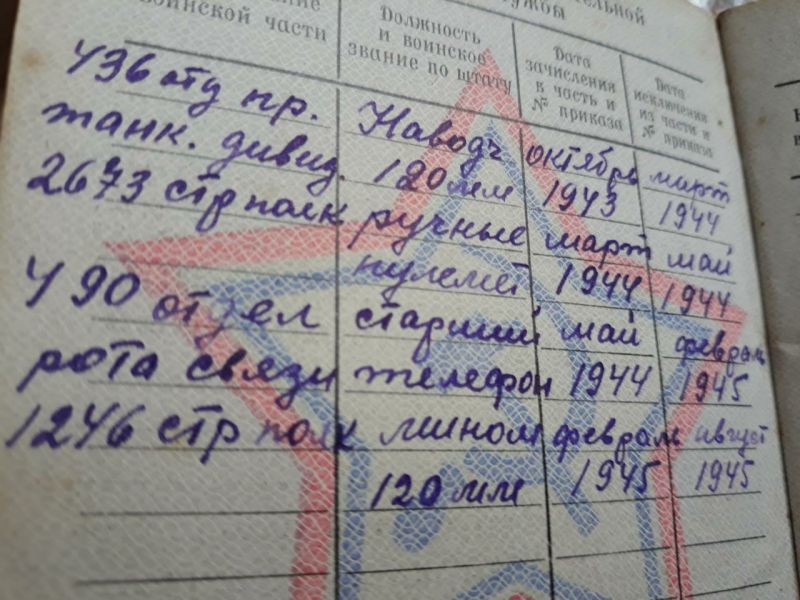 воинской части
Должность
и воинское
звание по штату
ужбы
Дата
зачисления
в часть и
№ приказа
тельной
Дата
исключения
из части и
№ приказа
436 отд пр. Наводч октябрь март
танк. дивиз. 120 мм 1943 1944
2673 стр полк ручные март май
пулемет 1944 1944
490 отдел старший май февраль
рота связи телефон 1944 1945
1246 стр полк февраль август
120 мм 1945 1945